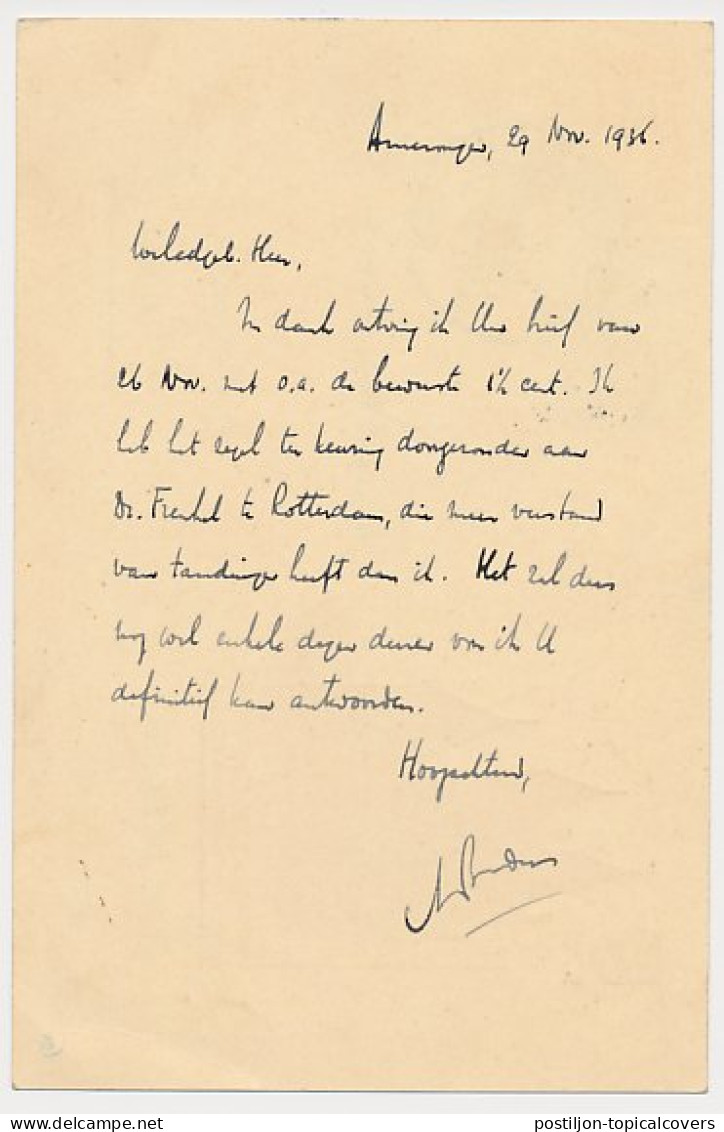 Amerongen, 29 Nov. 1936.
Weledgeb. Heer,
In dank ontving ik Uw brief van
26 Nov. met o.a. de bewuste 1½ cent. Ik
heb het zegel ter keuring doorgezonden aan
Dr. Frenkel te Rotterdam, die meer verstand
van tandingen heeft dan ik. Het zal dus
nog wel enkele dagen duren voor ik U
definitief kan antwoorden.
Hoogachtend,
postiljon-topicalcovers